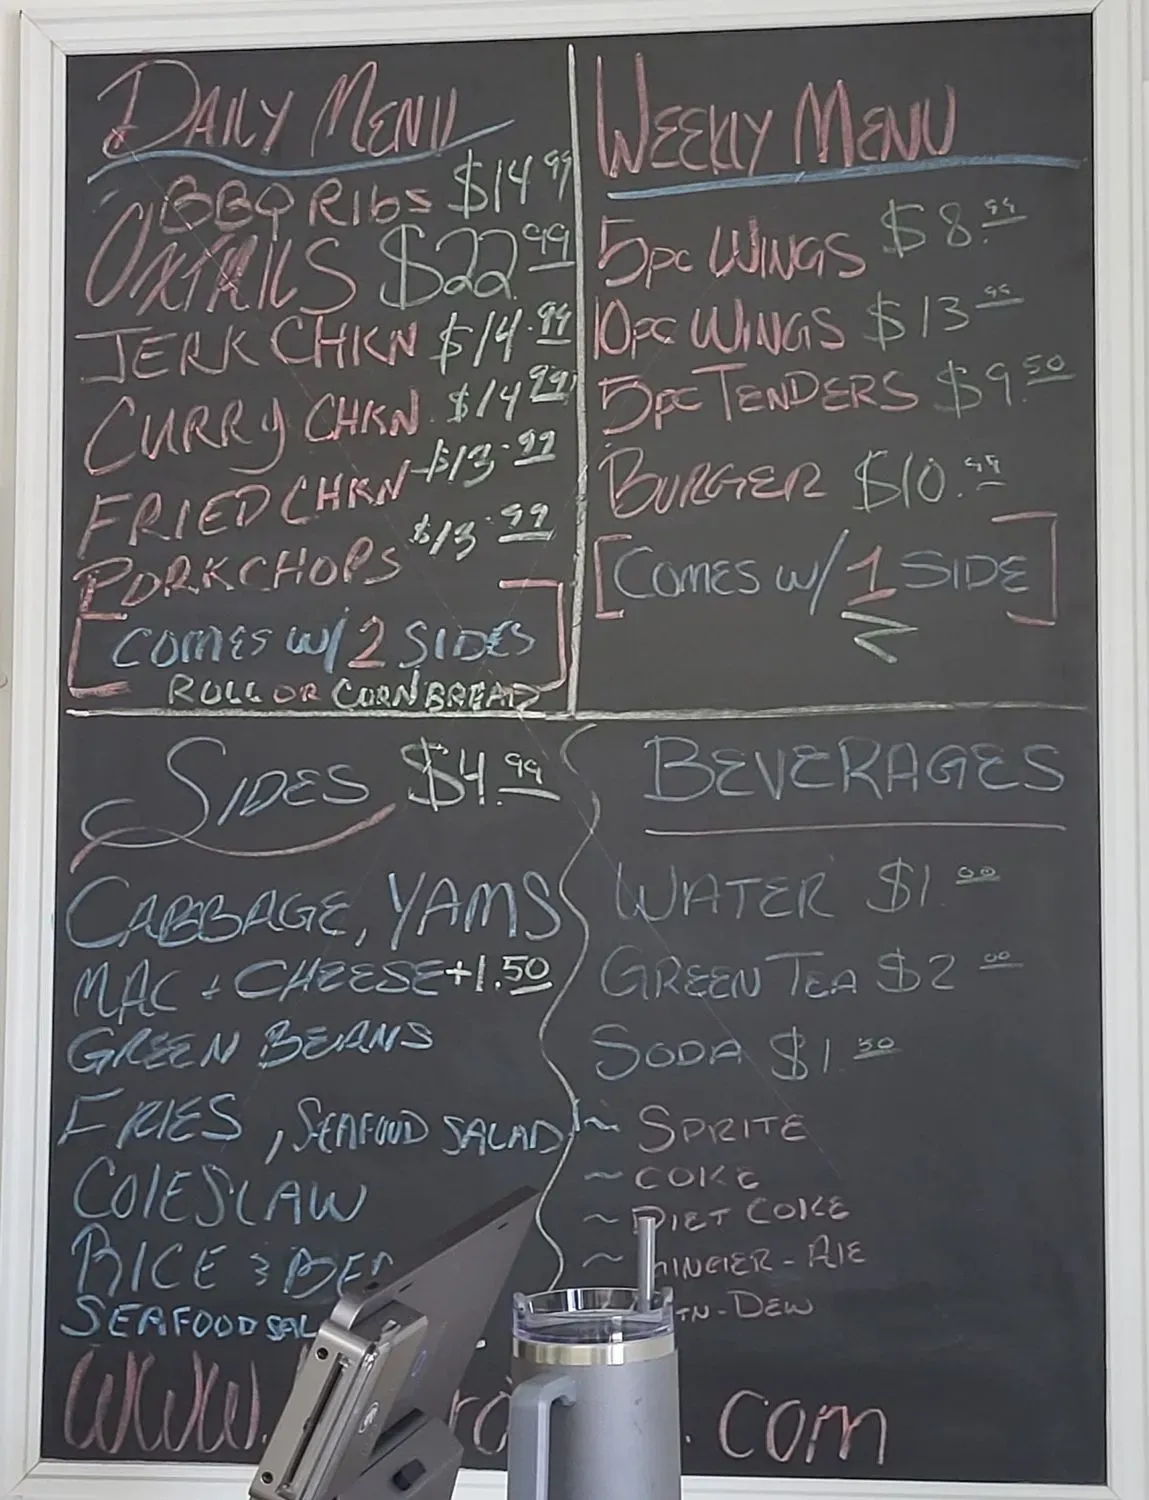 DAILY MENU
BBQ RIbS $14.99
OXTAILS $22.99
JERK CHKN $14.99
CURRY CHKN $14.99
FRIED CHKN $13.99
PORKCHOPS $13.99
COMES W/ 2 SIDES
ROLL OR CORNBREAD
WEEKLY MENU
5pc WINGS $8.99
10pc WINGS $13.99
5pc TENDERS $9.50
BURGER $10.99
[COMES W/ 1 SIDE]
SIDES $4.99
CABBAGE, YAMS
MAC + CHEESE +1.50
GREEN BEANS
FRIES, SEAFOOD SALAD
COlESLAW
RICE & BE
SEAFOOD SAL
BEVERAGES
WATER $1.00
GREEN TEA $2.00
SODA $1.50
~ SPRITE
~ COKE
~ DIET COKE
~ INGER-AlE
TN-DEW
www. .com